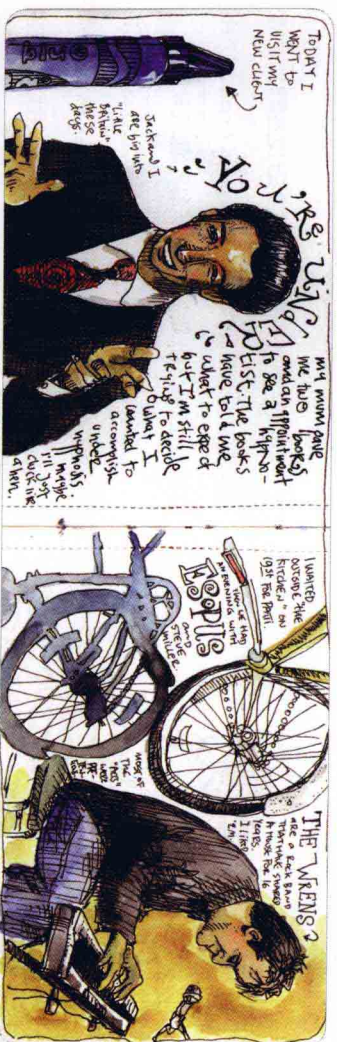 TODAY I
WENT TO
VISIT MY
NEW CLIENT
Jack and I
are big into
"Little
Britain"
these
days.
YOU'RE
my mum gave
me two books
and an appointment
to see a hypno-
tist. The books
have told me
what to expect
but I'm still
trying to decide
what I
wanted to
accomplish
under
hypnosis.
maybe
I'll just
cluck like
a hen.
I WAITED
OUTSIDE "THE
KITCHEN" ON
19st FOR PATTI
THEN WE HAD
AN EVENING WITH
ESOPUS
AND
STEVE
MILLER.
THE WRENS
ARE A ROCK BAND
THAT HAVE SHARED
A HOUSE FOR 16
YEARS.
I LIKED
'EM
MOST OF
THE
"KIDS"
WERE